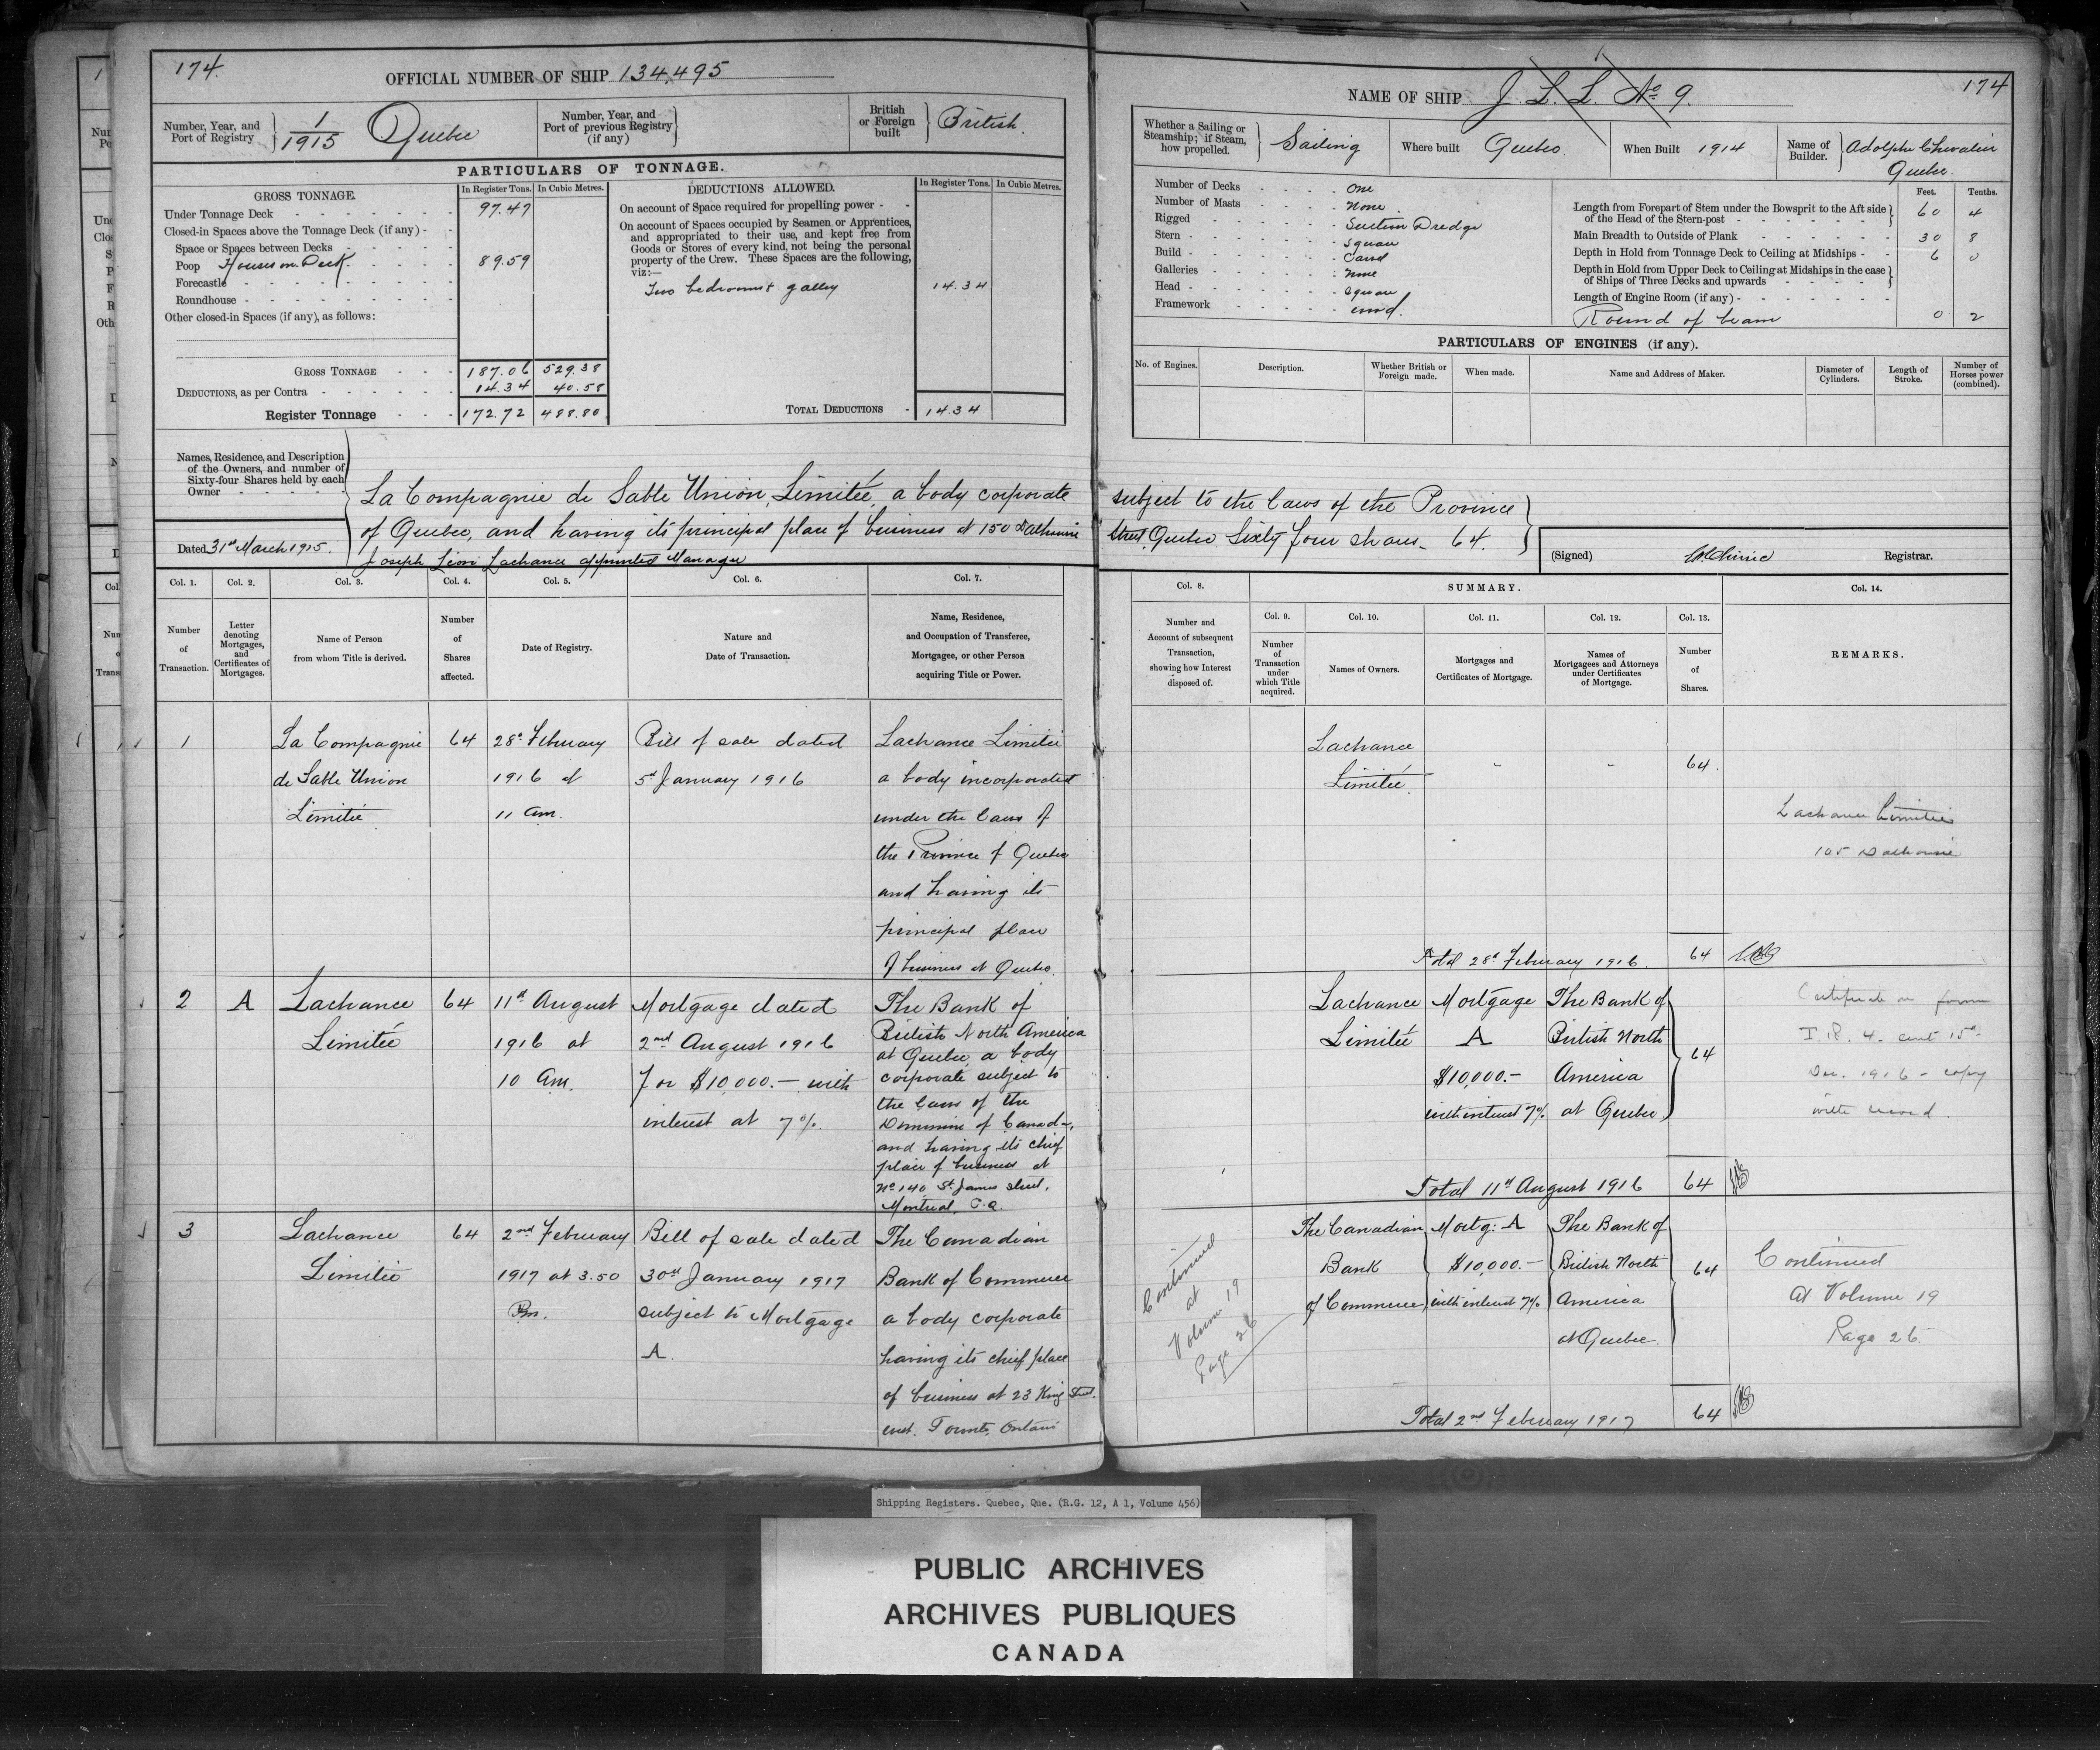 174.
OFFICIAL NUMBER OF SHIP 134,495
Number, Year, and Port of Registry
1/1915 Quebec
Number, Year, and Port of previous Registry (if any)
British or Foreign built
British.
PARTICULARS OF TONNAGE.
GROSS TONNAGE.
In Register Tons.
In Cubic Metres.
DEDUCTIONS ALLOWED.
In Register Tons.
In Cubic Metres.
Under Tonnage Deck 97.47
Closed-in Spaces above the Tonnage Deck (if any)
Space or Spaces between Decks
Poop Houses on Deck. 89.59
Forecastle
Roundhouse
Other closed-in Spaces (if any), as follows:
On account of Space required for propelling power
On account of Spaces occupied by Seamen or Apprentices,
and appropriated to their use, and kept free from
Goods or Stores of every kind, not being the personal
property of the Crew. These Spaces are the following,
viz:—
Two bedrooms & galley 14.34
GROSS TONNAGE 187.06 529.38
DEDUCTIONS, as per Contra 14.34 40.58
Register Tonnage 172.72 488.80
TOTAL DEDUCTIONS 14.34
Names, Residence, and Description
of the Owners, and number of
Sixty-four Shares held by each
Owner
La Compagnie de Sable Union, Limitée, a body corporate
of Quebec, and having its principal place of business at 150 Dalhousie
Joseph Léon Lachance appointed Manager
Dated 31st March 1915.
Col. 1.
Number of Transaction.
Col. 2.
Letter denoting Mortgages, and Certificates of Mortgages.
Col. 3.
Name of Person from whom Title is derived.
Col. 4.
Number of Shares affected.
Col. 5.
Date of Registry.
Col. 6.
Nature and Date of Transaction.
Col. 7.
Name, Residence, and Occupation of Transferee, Mortgagee, or other Person acquiring Title or Power.
1 La Compagnie 64 28th February Bill of sale dated Lachance Limitée
de Sable Union 1916 at 5th January 1916 a body incorporated
Limitée 11 am. under the laws of
the Province of Quebec
and having its
principal place
of business at Quebec.
2 A Lachance 64 11th August Mortgage dated The Bank of
Limitée 1916 at 2nd August 1916 British North America
at Quebec, a body
10 am. for $10,000.— with corporate subject to
interest at 7%. the laws of the
Dominion of Canada,
and having its chief
place of business at
No 140 St. James Street,
Montreal, P.Q.
3 Lachance 64 2nd February Bill of sale dated The Canadian
Limitée 1917 at 3.50 30th January 1917 Bank of Commerce
Pm. subject to Mortgage a body corporate
A. having its chief place
of business at 23 King Street
west. Toronto, Ontario
NAME OF SHIP J. L. L. No 9.
174
Whether a Sailing or Steamship; if Steam, how propelled.
Sailing
Where built Quebec.
When Built 1914
Name of Builder.
Adolphe Chevalier
Quebec.
Number of Decks One
Number of Masts None
Rigged Suction Dredge
Stern Square
Build Carvel
Galleries None
Head Square
Framework Wood.
Feet. Tenths.
Length from Forepart of Stem under the Bowsprit to the Aft side
of the Head of the Stern-post 60 4
Main Breadth to Outside of Plank 30 8
Depth in Hold from Tonnage Deck to Ceiling at Midships 6 0
Depth in Hold from Upper Deck to Ceiling at Midships in the case
of Ships of Three Decks and upwards
Length of Engine Room (if any)
Round of beam 0 2
PARTICULARS OF ENGINES (if any).
No. of Engines.
Description.
Whether British or Foreign made.
When made.
Name and Address of Maker.
Diameter of Cylinders.
Length of Stroke.
Number of Horses power (combined).
subject to the laws of the Province
Street, Quebec, Sixty four shares. 64.
(Signed) Registrar.
Col. 8.
Number and Account of subsequent Transaction, showing how Interest disposed of.
SUMMARY.
Col. 9.
Number of Transaction under which Title acquired.
Col. 10.
Names of Owners.
Col. 11.
Mortgages and Certificates of Mortgage.
Col. 12.
Names of Mortgagees and Attorneys under Certificates of Mortgage.
Col. 13.
Number of Shares.
Col. 14.
REMARKS.
Lachance
Limitée. 64.
Lachance Limitée
105 Dalhousie
Total 28th February 1916. 64
Lachance Mortgage The Bank of
Limitée A British North
$10,000.— America
with interest 7% at Quebec 64
Certificate on form
sent 15th
Dec. 1916 - copy
Total 11th August 1916 64
The Canadian Mortg: A The Bank of
Bank $10,000.— British North
of Commerce with interest 7% America
at Quebec. 64
Continued
at
Volume 19
Page 26
Continued
at Volume 19
Page 26
Total 2nd February 1917 64
Shipping Registers. Quebec, Que. (R.G. 12, A 1, Volume 456)
PUBLIC ARCHIVES
ARCHIVES PUBLIQUES
CANADA